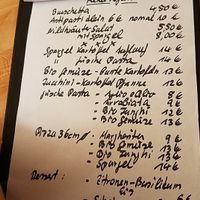 Bruschetta 4,50 €
Antipasti klein 6 € normal 10 €
Wildkräuter Salat 5,50 €
mit Spargel 8,00 €
Spargel Kartoffel Auflauf 14 €
" frische Pasta 14 €
Bio Gemüse - Bunte Kartoffeln 13 €
Zucchini - Kartoffel Pfanne 12 €
frische Pasta - Aglio olio 8 €
- Arrabiata 9 €
- Bio Funghi 12 €
- Bio Gemüse 13 €
Pizza 36cm Ø - Margherita 9 €
- Bio Gemüse 13 €
- Bio Funghi 13 €
- Spargel 14 €
Dessert : - Zitronen-Basilikum